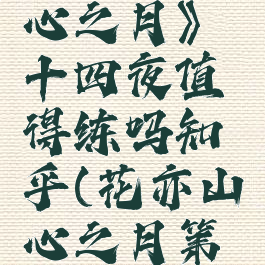 心之月》
十四夜值
得练吗知
乎(花亦山
心之月第